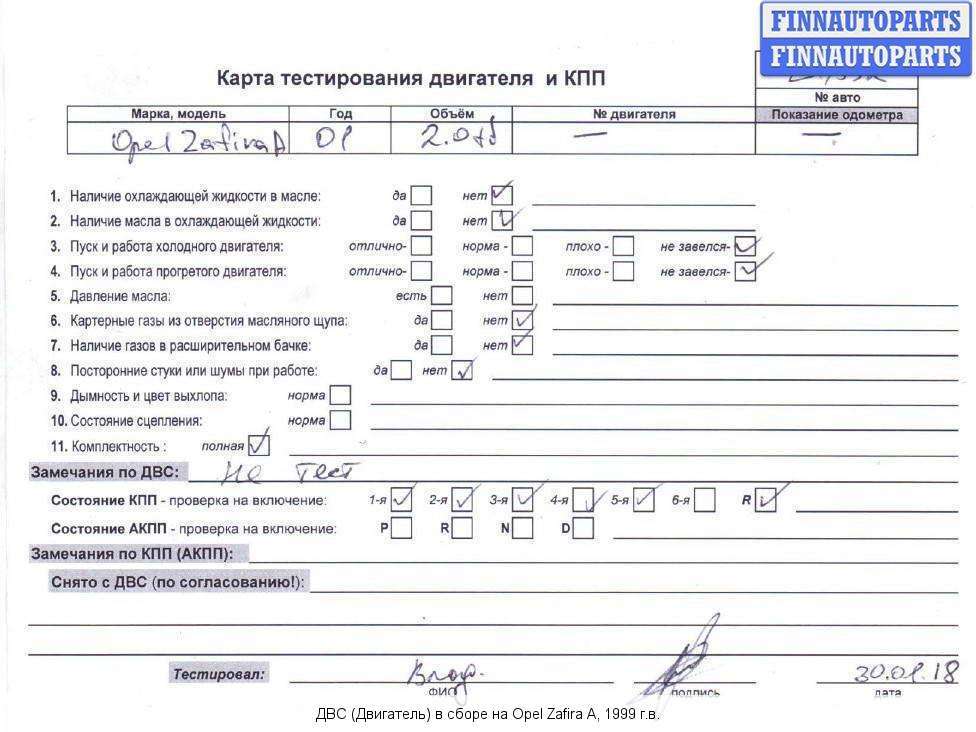 FINNAUTOPARTS
FINNAUTOPARTS
Карта тестирования двигателя и КПП
№ авто
Марка, модель Год Объём № двигателя Показание одометра
Opel Zafira A 01 — —
1. Наличие охлаждающей жидкости в масле: да нет
2. Наличие масла в охлаждающей жидкости: да нет
3. Пуск и работа холодного двигателя: отлично- норма - плохо - не завелся-
4. Пуск и работа прогретого двигателя: отлично- норма - плохо - не завелся-
5. Давление масла: есть нет
6. Картерные газы из отверстия масляного щупа: да нет
7. Наличие газов в расширительном бачке: да нет
8. Посторонние стуки или шумы при работе: да нет
9. Дымность и цвет выхлопа: норма
10. Состояние сцепления: норма
11. Комплектность : полная
Замечания по ДВС: не тест
Состояние КПП - проверка на включение: 1-я 2-я 3-я 4-я 5-я 6-я R
Состояние АКПП - проверка на включение: P R N D
Замечания по КПП (АКПП):
Снято с ДВС (по согласованию!):
Тестировал: Влад. 30.01.18
ФИО подпись дата
ДВС (Двигатель) в сборе на Opel Zafira A, 1999 г.в.